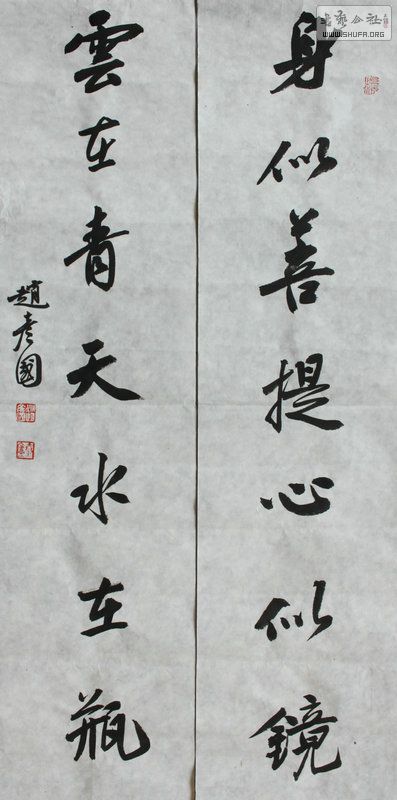 身似善提心似鏡
雲在青天水在瓶
趙彥國
WWW.SHUFA.ORG